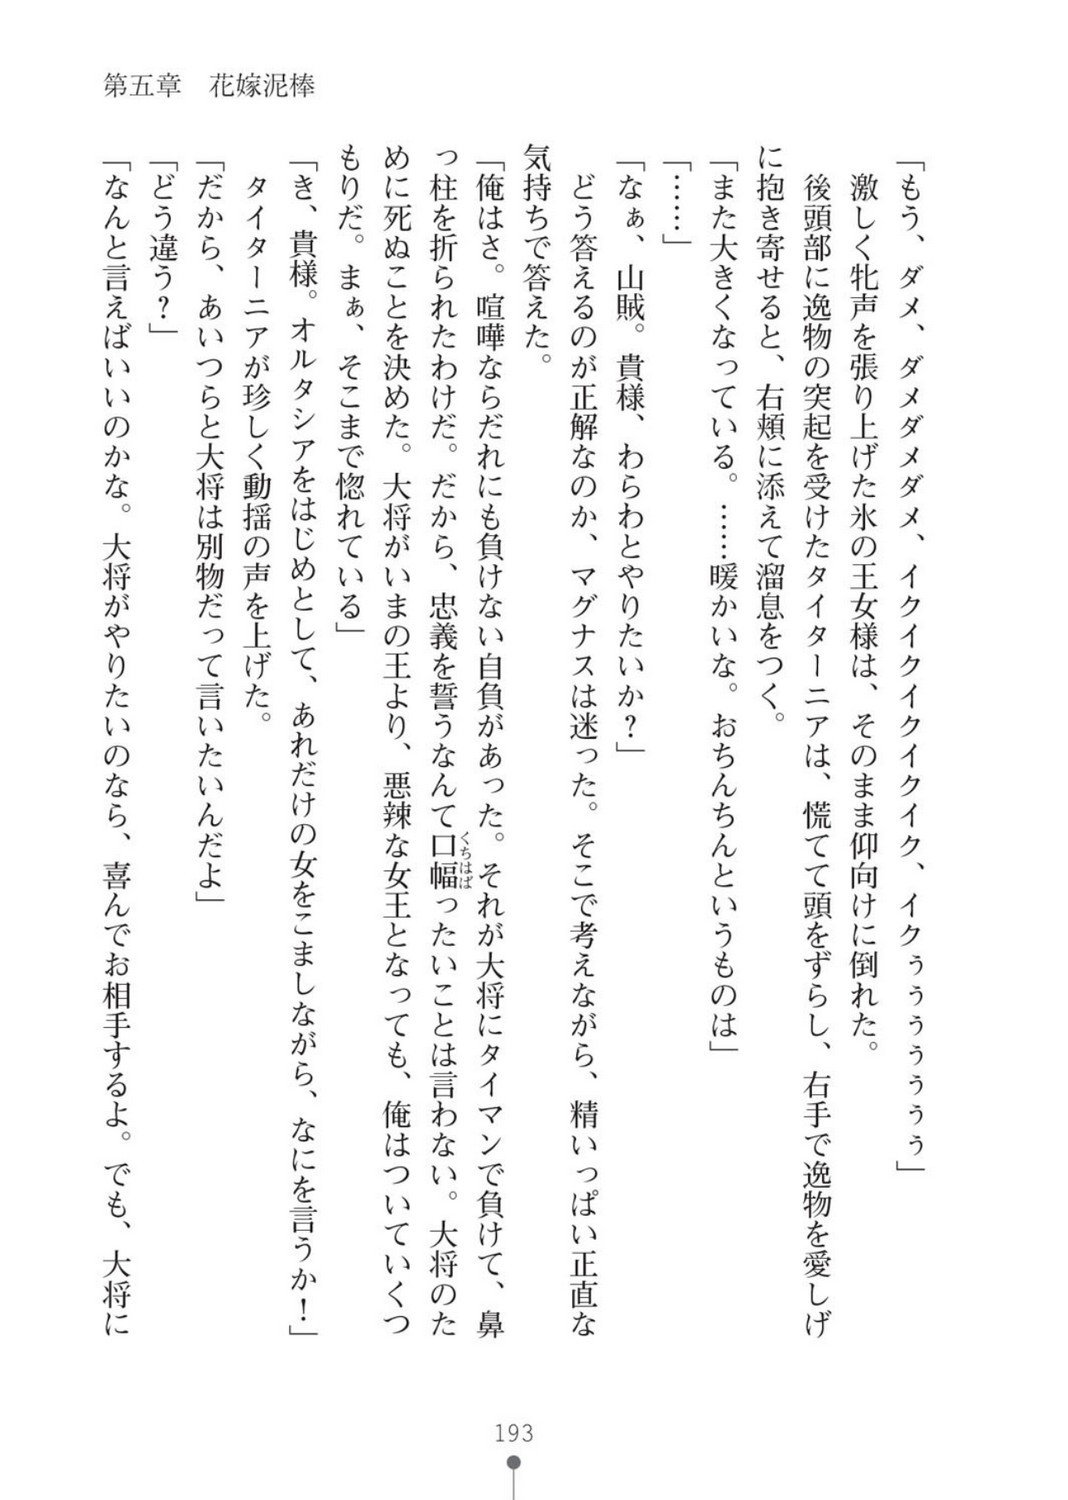 第五章　花嫁泥棒
「もう、ダメ、ダメダメダメ、イクイクイクイクイク、イクぅぅぅぅぅぅぅ」
　激しく牝声を張り上げた氷の王女様は、そのまま仰向けに倒れた。
　後頭部に逸物の突起を受けたタイターニアは、慌てて頭をずらし、右手で逸物を愛しげ
に抱き寄せると、右頬に添えて溜息をつく。
「また大きくなっている。……暖かいな。おちんちんというものは」
「……」
「なぁ、山賊。貴様、わらわとやりたいか？」
　どう答えるのが正解なのか、マグナスは迷った。そこで考えながら、精いっぱい正直な
気持ちで答えた。
「俺はさ。喧嘩ならだれにも負けない自負があった。それが大将にタイマンで負けて、鼻
っ柱を折られたわけだ。だから、忠義を誓うなんて口幅ったいことは言わない。大将のた
くちはば
めに死ぬことを決めた。大将がいまの王より、悪辣な女王となっても、俺はついていくつ
もりだ。まぁ、そこまで惚れている」
「き、貴様。オルタシアをはじめとして、あれだけの女をこましながら、なにを言うか！」
　タイターニアが珍しく動揺の声を上げた。
「だから、あいつらと大将は別物だって言いたいんだよ」
「どう違う？」
「なんと言えばいいのかな。大将がやりたいのなら、喜んでお相手するよ。でも、大将に
193